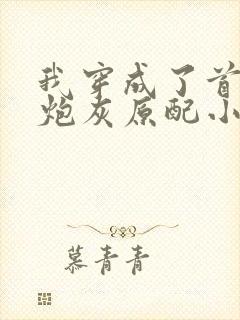 我穿成了首
炮灰原配小
慕青青